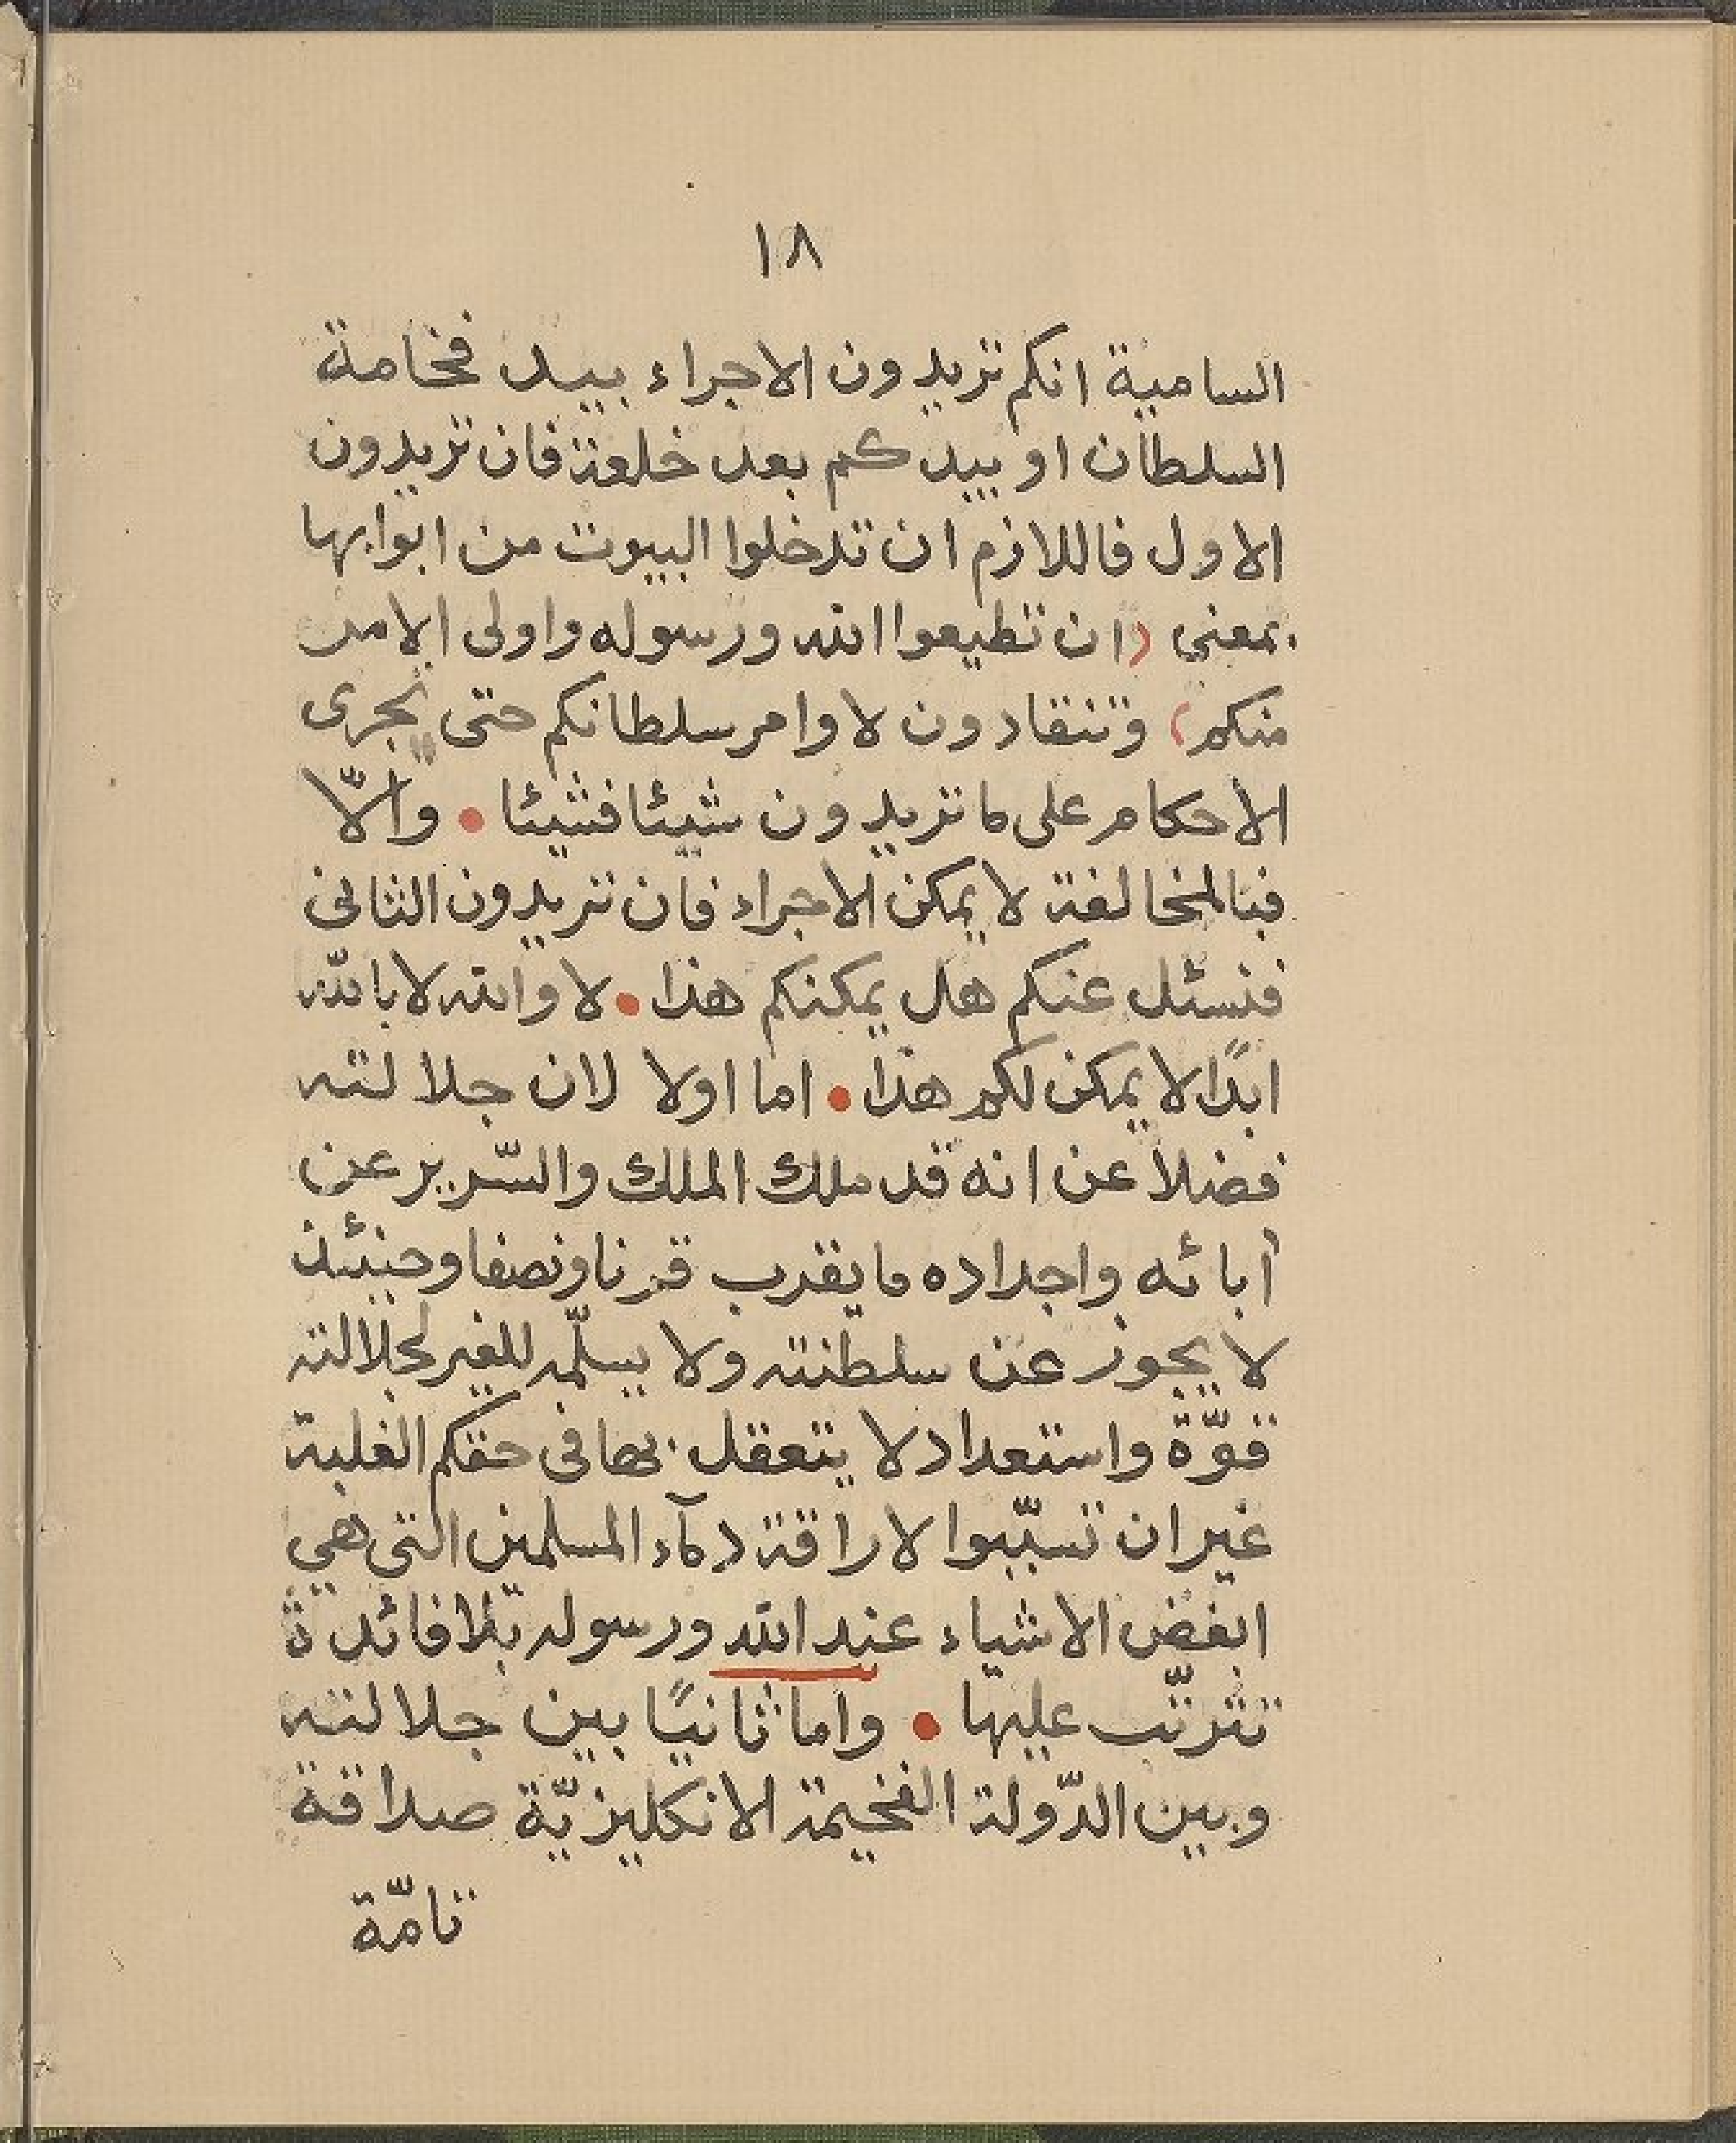 ١٨
السامية انكم تريدون الاجراء بيد فخامة
السلطان او بيدكم بعد خلعة فان تريدون
الاول فاللازم ان تدخلوا البيوت من ابوابها
بمعنى (ان تطيعوا الله ورسوله واولى الامر
منكم) وتنقادون لاوامر سلطانكم حتى يجرى
الاحكام على ما تريدون شيئا فشيئا • والّا
فبالمخالفة لا يمكن الاجراء فان تريدون الثانى
فنسئل عنكم هل يمكنكم هذا • لا والله لا بالله
ابدًا لا يمكن لكم هذا • اما اولا لان جلالته
فضلاً عن انه قد ملك الملك والسّرير عن
آبائه واجداده ما يقرب قرنا ونصفا وحينئذ
لا يجوز عن سلطنته ولا يسلّمه للغير لجلالته
قوّة واستعداد لا يتعقل بها فى حقكم الغلبة
غير ان تسبّبوا لاراقة دمآء المسلمين التى هي
ابغض الاشياء عند الله ورسوله بلا فائدة
تترتّب عليها • واما ثانيًا بين جلالته
وبين الدّولة الفخيمة الانكليزيّة صداقة
تامّة